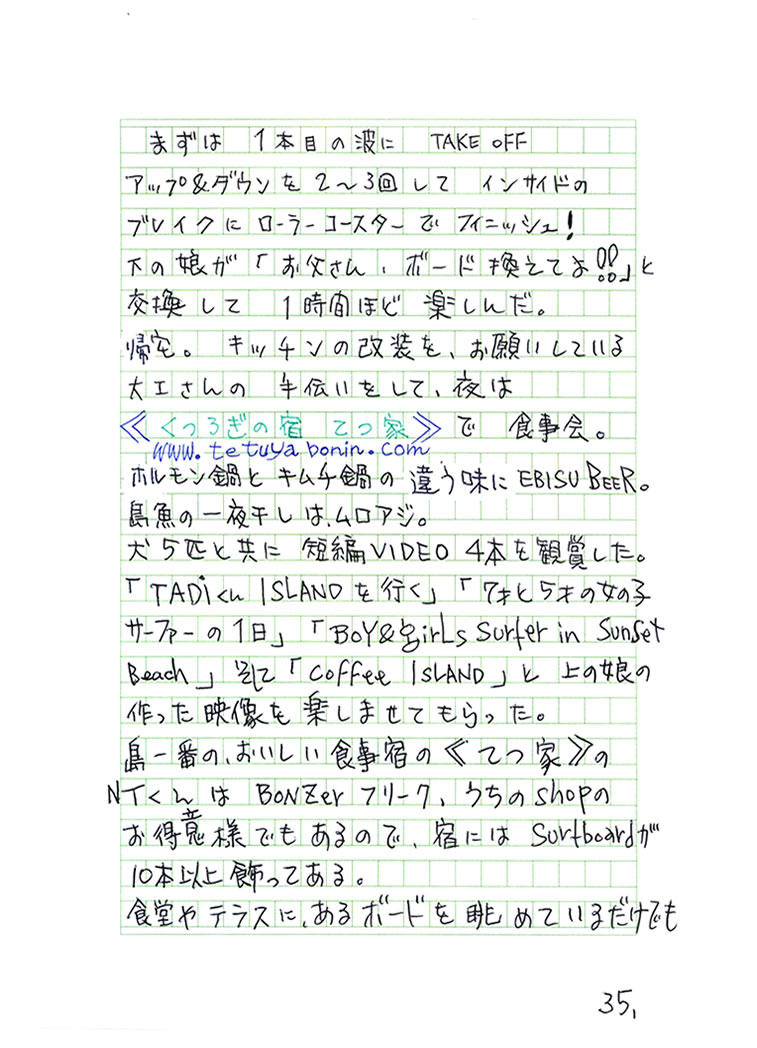 まずは 1本目の波に TAKE OFF
アップ&ダウンを 2〜3回 して インサイドの
ブレイクに ローラーコースターで フィニッシュ!
下の娘が「お父さん、ボード換えてよ!!」と
交換して 1時間ほど 楽しんだ。
帰宅。 キッチンの改装を、お願いしている
大工さんの 手伝いをして、夜は
≪くつろぎの宿 てつ家≫ で 食事会。
www.tetuyabonin.com
ホルモン鍋と キムチ鍋の 違う味に EBISU BEER。
島魚の一夜干しは、ムロアジ。
犬5匹と共に 短編VIDEO 4本を観賞した。
「TADiくん ISLANDを行く」「7才と5才の女の子
サーファーの1日」「BOY&girLs Surfer in Sunset
Beach」そして「Coffee ISLAND」と 上の娘の
作った映像を 楽しませてもらった。
島一番の、おいしい食事宿の≪てつ家≫の
NTくんは BONZer フリーク、うちのshopの
お得意様でもあるので、宿には Surfboardが
10本以上飾ってある。
食堂やテラスに、あるボードを眺めているだけでも
35,